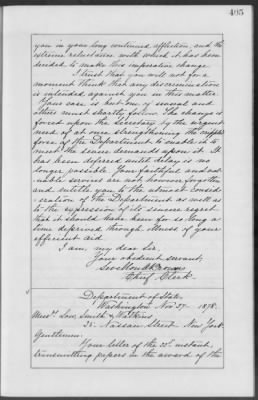 405
you in your long continued affliction, and the
extreme reluctance with which it has been
decided to make this imperative change.
I trust that you will not for a
moment think that any discrimination
is intended against you in this matter.
Your case is but one of several and
others must shortly follow. The change is
forced upon the Secretary by the urgent
need of at once strengthening the effective
force of the Department to enable it to
meet the severe demands upon it. It
has been deferred until delay is no
longer possible. Your faithful and val-
uable services are not however forgotten
and entitle you to the utmost consid-
eration of the Department as well as
to the expression of its sincere regret
that it should have been for so long a
time deprived through illness of your
efficient aid.
I am, my dear Sir,
Your obedient servant,
Chief Clerk.
Department of State,
Washington Nov 27 1878.
Messrs. Low, Smith & Watkins,
25 Nassau Street New York.
Gentlemen:
Your letter of the 25th instant,
transmitting papers in the award of the